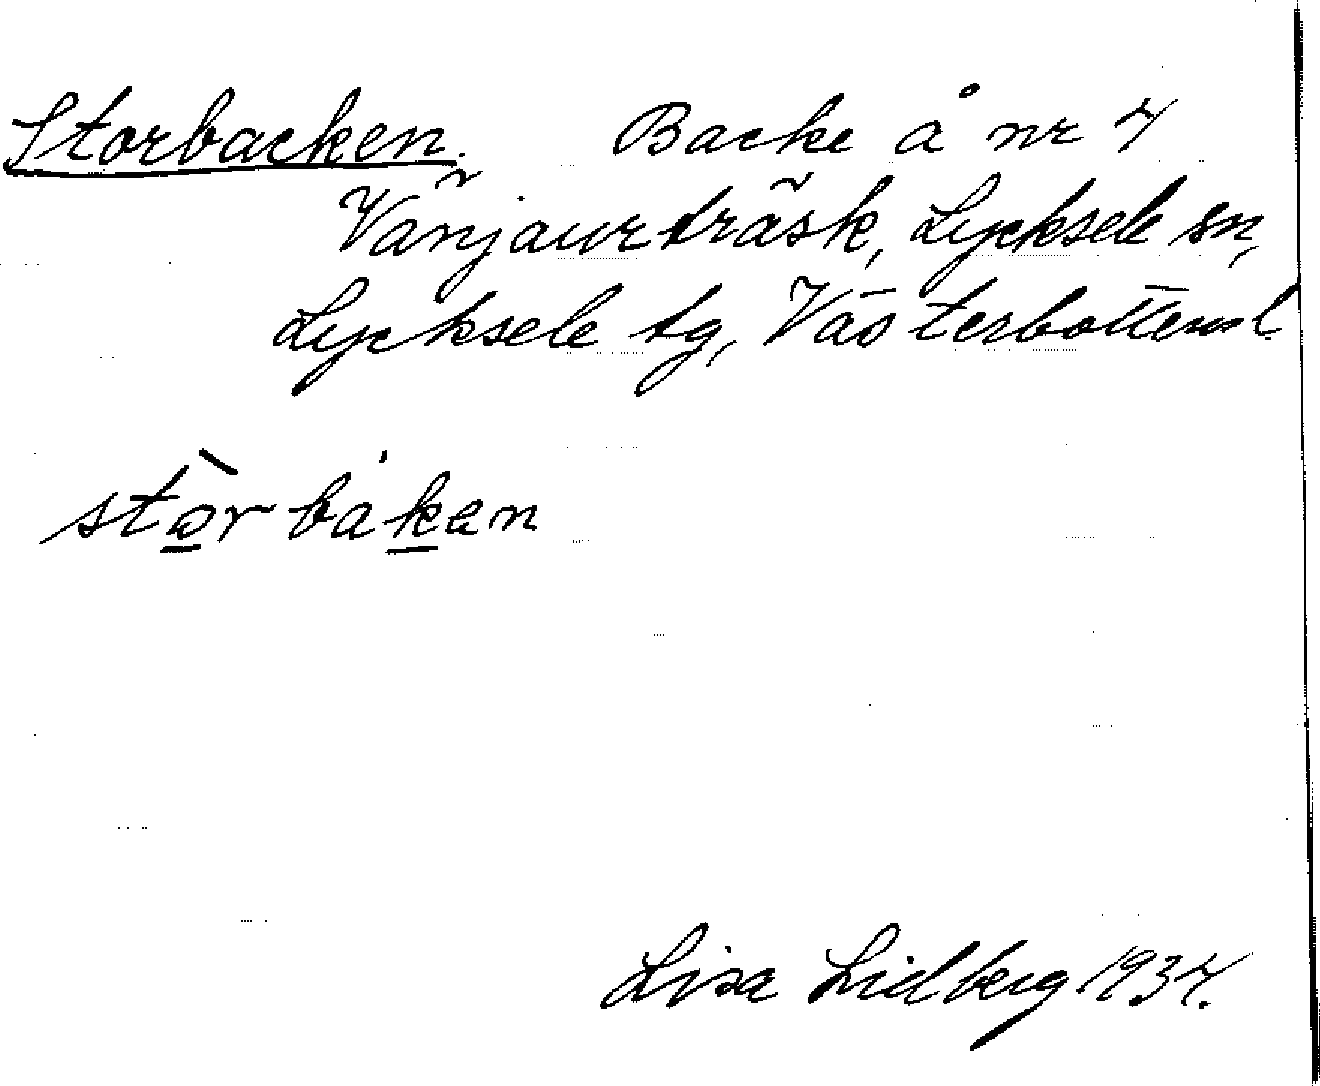 Storbacken. Backe å nr 7
Vänjaurträsk, Lycksele sn,
Lycksele tg, Västerbottens l.
stò̠r bak̠en
Lisa Lidberg 1937.